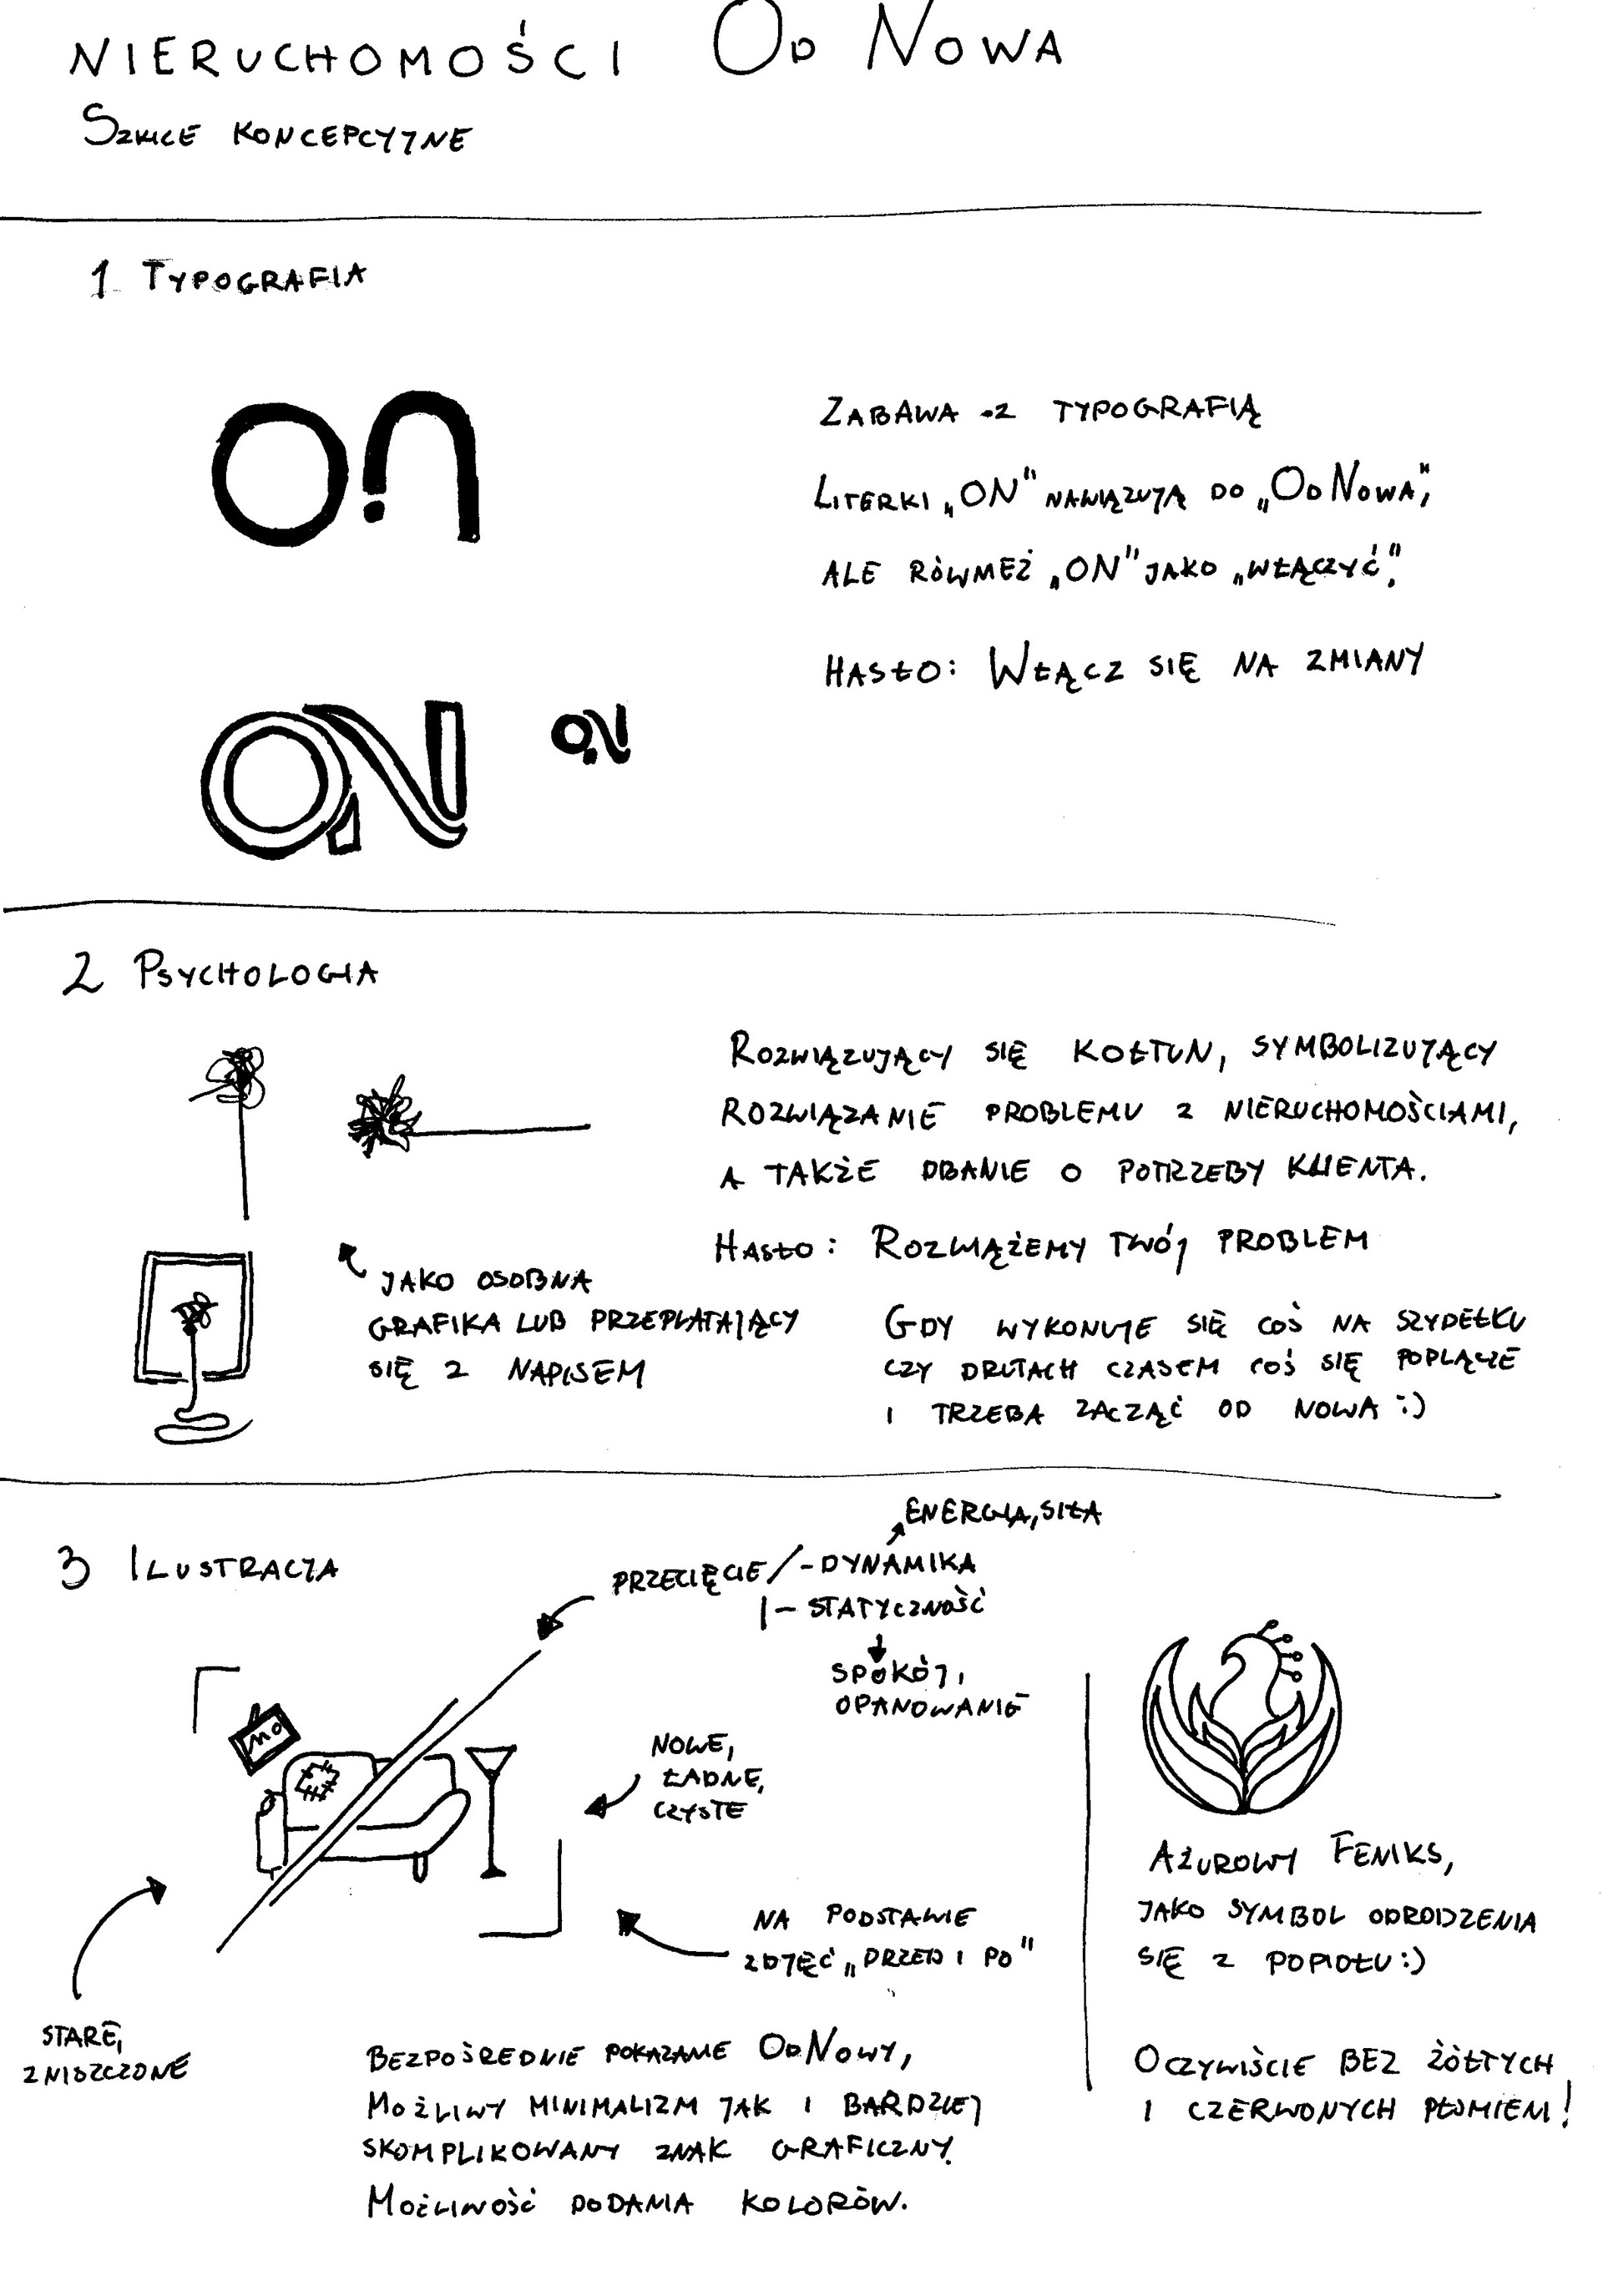 NIERUCHOMOŚCI OD NOWA
SZKICE KONCEPCYJNE
1 TYPOGRAFIA
On
ZABAWA Z TYPOGRAFIĄ
LITERKI „ON" NAWIĄZUJĄ DO „OD NOWA",
ALE RÓWNIEŻ „ON" JAKO „WŁĄCZYĆ".
HASŁO: WŁĄCZ SIĘ NA ZMIANY
ON ON
2 PSYCHOLOGIA
ROZWIĄZUJĄCY SIĘ KOŁTUN, SYMBOLIZUJĄCY
ROZWIĄZANIE PROBLEMU Z NIERUCHOMOŚCIAMI,
A TAKŻE DBANIE O POTRZEBY KLIENTA.
HASŁO: ROZWIĄŻEMY TWÓJ PROBLEM
JAKO OSOBNA
GRAFIKA LUB PRZEPLATAJĄCY
SIĘ Z NAPISEM
GDY WYKONUJE SIĘ COŚ NA SZYDEŁKU
CZY DRUTACH CZASEM COŚ SIĘ POPLĄCZE
I TRZEBA ZACZĄĆ OD NOWA :)
3 ILUSTRACJA
ENERGIA, SIŁA
PRZECIĘCIE / - DYNAMIKA
| - STATYCZNOŚĆ
SPOKÓJ,
OPANOWANIE
NOWE,
ŁADNE,
CZYSTE
NA PODSTAWIE
ZDJĘĆ „PRZED I PO"
STARE,
ZNISZCZONE
BEZPOŚREDNIE POKAZANIE OD NOWY,
MOŻLIWY MINIMALIZM JAK I BARDZIEJ
SKOMPLIKOWANY ZNAK GRAFICZNY.
MOŻLIWOŚĆ DODANIA KOLORÓW.
AŻUROWY FENIKS,
JAKO SYMBOL ODRODZENIA
SIĘ Z POPIOŁU :)
OCZYWIŚCIE BEZ ŻÓŁTYCH
I CZERWONYCH PŁOMIENI!